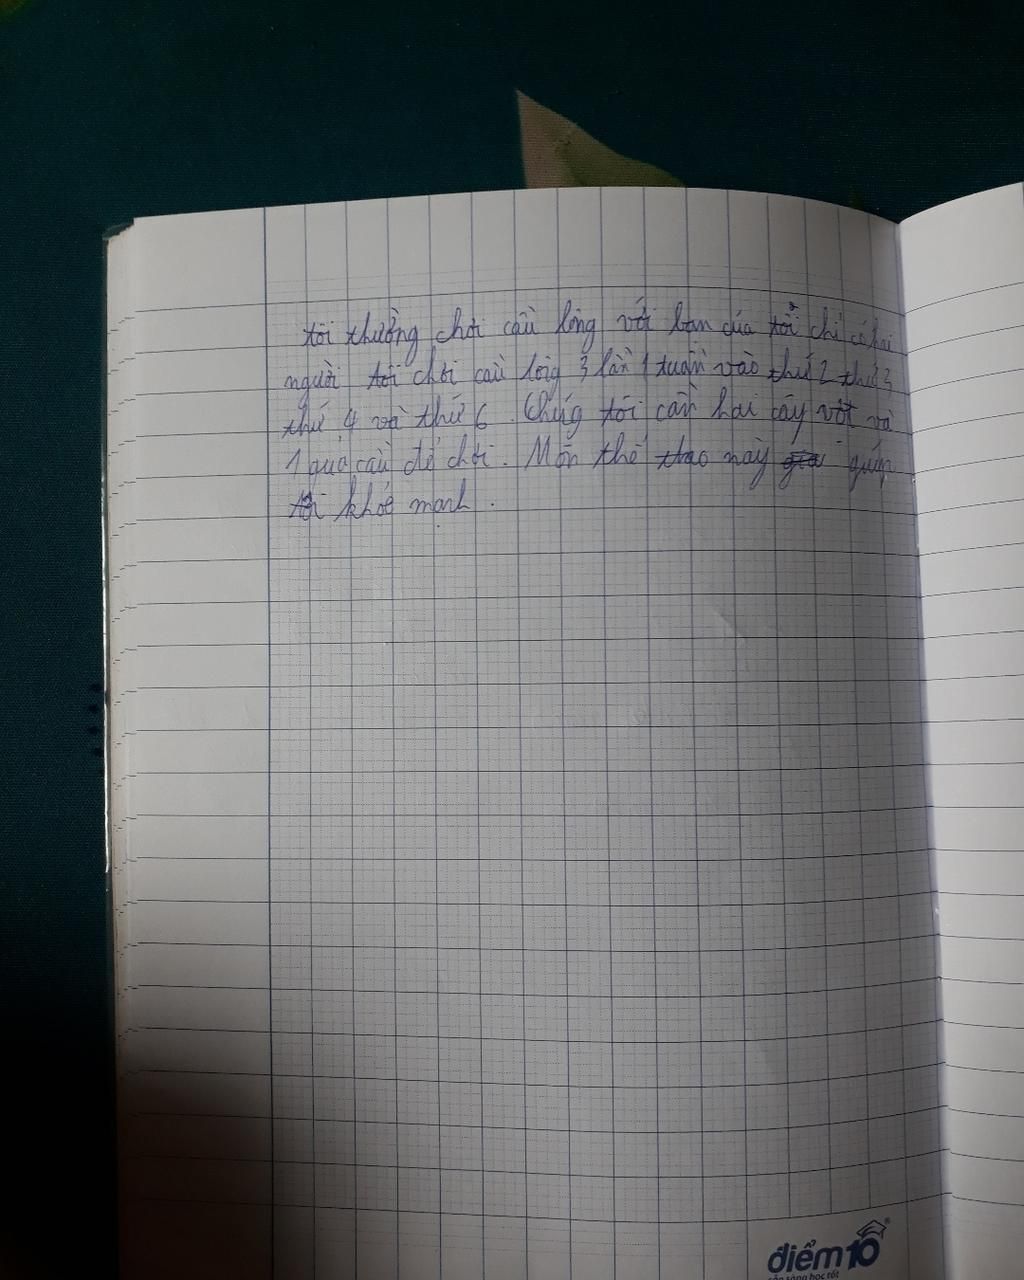 tôi thường chơi cầu lông với bạn của tôi chỉ có hai
người tôi chơi cầu lông 3 lần 1 tuần vào thứ 2 thứ 3
thứ 4 và thứ 6. Chúng tôi cần hai cây vợt và
1 quả cầu để chơi. Môn thể thao này giúp
tôi khoẻ mạnh.
điểm10
sẵn sàng học tốt